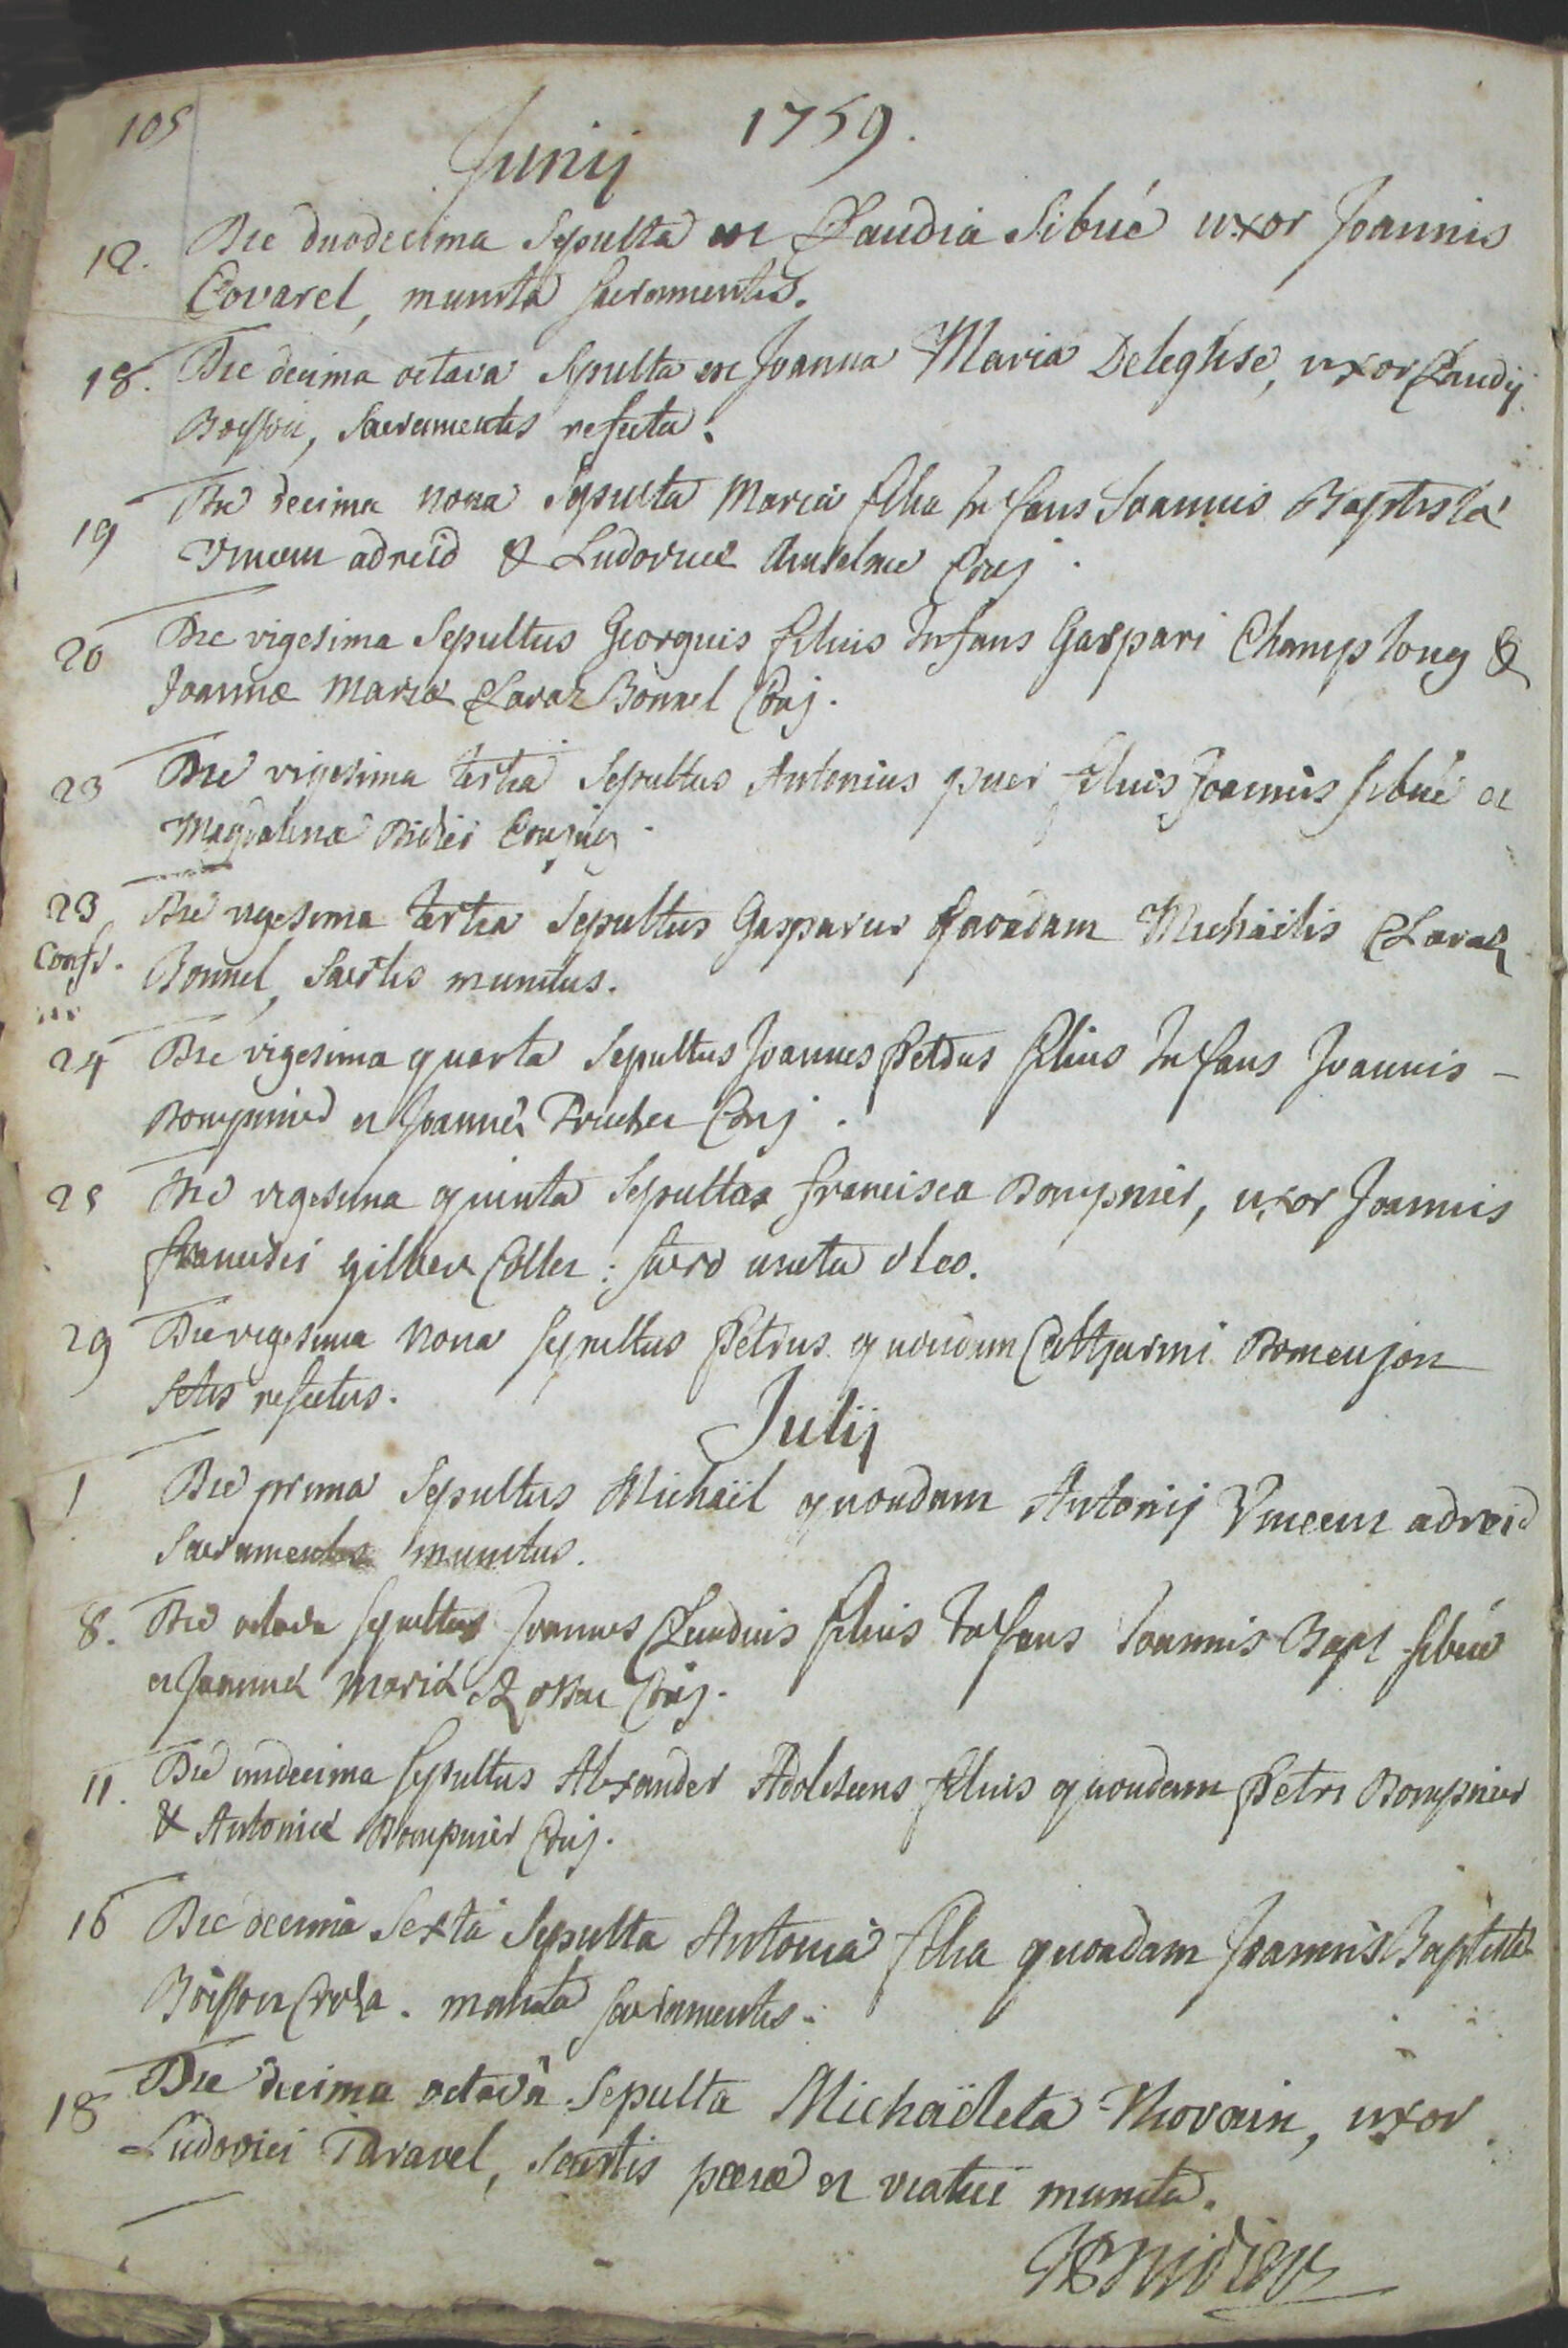 105
1759.
Junij
12. Die duodecima Sepulta est Claudia Sibué uxor Joannis
Covarel, munita sacramentis.
18. Die decima octava Sepulta est Joanna Maria Deleglise, uxor Claudij
Boisson, Sacramentis refecta.
19 Die decima nona Sepulta Maria filia Infans Joannis Baptistæ
Vincent adreid & Ludovicæ Anselme Conj.
20 Die vigesima Sepultus Georguis filius Infans Gaspari Champlong &
Joannæ Mariæ Claraz Bonnel Conj.
23 Die vigesima tertia Sepultus Antonius puer filius Joannis sibué et
Magdalenæ Didier Conjug.
23 Die vigesima tertia Sepultus Gasparus quondam Michaëlis Claraz
Confr. Bonnel, Sacrtis munitus.
24 Die vigesima quarta Sepultus Joannes Petrus filius Infans Joannis -
Bompnier et Joannæ Truchet Conj.
25 Die vigesima quinta Sepulta Francisca Bompnier, uxor Joannis
Francisci gilbert Collet : sacro uncta oleo.
29 Die vigesima nona sepultus Petrus quondam Catharini Bomenjon
Sctis refectus.
Julij
1 Die prima Sepultus Michaël quondam Antonij Vincent adreid
Sacramentis munitus.
8. Die octava sepultus Joannes Claudius filius Infans Joannis Bapt sibué
et Joannæ Mariæ Conj.
11. Die undecima sepultus Alexander Adolescens filius quondam Petri Bompnier
& Antoniæ Bompnier Conj.
16 Die decima Sexta Sepulta Antonia filia quondam Joannis Baptistæ
Boisson Croza. munita sacramentis.
18 Die decima octava Sepulta Michaëleta Thovain, uxor
Ludovici Taravel, Sacrtis pœnæ et viatici munita.